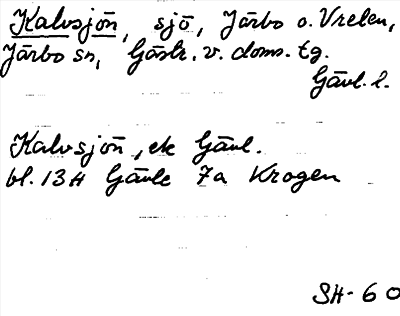 Kalvsjön, sjö, Järbo o. Vreten,
Järbo sn, Gästr. v. doms. tg.
Gävl. l.
Kalvsjön, ek Gävl.
bl. 13H Gävle 7a Krogen
SH-60